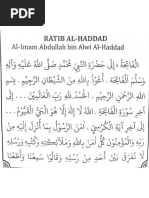 RATIB AL-HADDAD
Al-Imam Abdullah bin Alwi Al-Haddad
اَلْفَاتِحَةُ ، إِلَى حَضْرَةِ النَّبِيِّ مُحَمَّدٍ صَلَّى اللهُ عَلَيْهِ وَآلِهِ
وَسَلَّمَ اَلْفَاتِحَةْ . أَعُوْذُ بِاللهِ مِنَ الشَّيْطَانِ الرَّجِيْمِ . بِسْمِ
اللهِ الرَّحْمٰنِ الرَّحِيْمِ . اَلْحَمْدُ لِلّٰهِ رَبِّ الْعَالَمِيْنَ ... إِلَى
آخِرِ سُوْرَةِ الْفَاتِحَةِ . اَللهُ لَا إِلٰهَ إِلَّا هُوَ الْحَيُّ الْقَيُّوْمُ ...
إِلَى آخِرِ آيَةِ الْكُرْسِيِّ . آمَنَ الرَّسُوْلُ بِمَا أُنْزِلَ إِلَيْهِ مِنْ
رَبِّهِ وَالْمُؤْمِنُوْنَ كُلٌّ آمَنَ بِاللهِ وَمَلَائِكَتِهِ وَكُتُبِهِ
وَرُسُلِهِ لَا نُفَرِّقُ بَيْنَ أَحَدٍ مِنْ رُسُلِهِ وَقَالُوْا سَمِعْنَا وَأَطَعْنَا